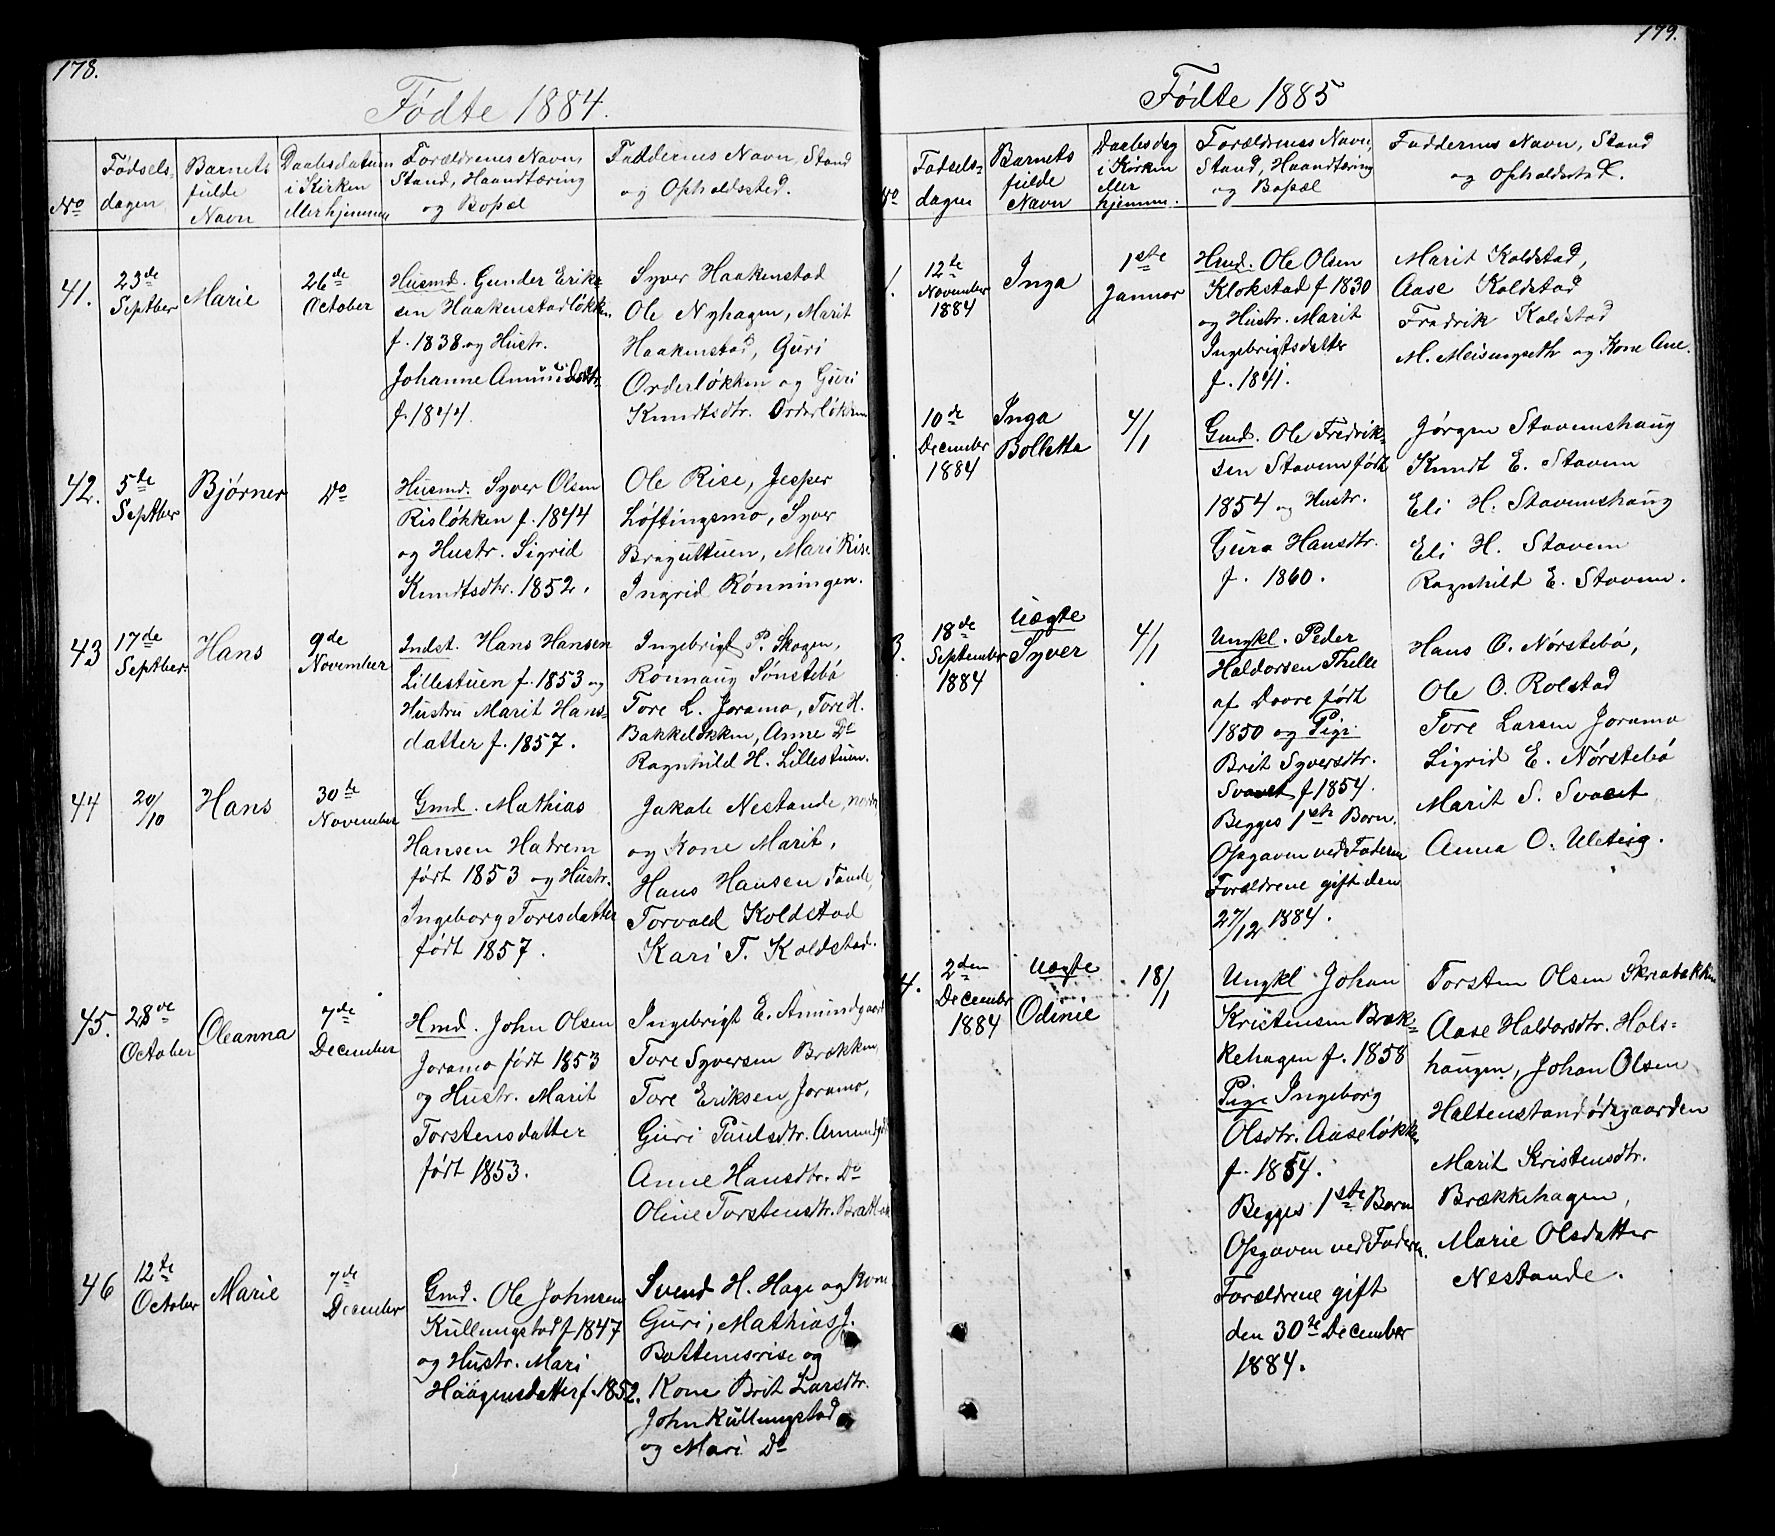 178.
Fødte 1884.
No
Fødsels-
dagen
Barnets
fulde
Navn
Daabsdatum
i Kirken
eller hjemme
Forældrenes Navn,
Stand, Haandtæring
og Bopæl
Faddernes Navn, Stand
og Opholdssted.
41.
23de
Septber
Marie
26de
October
Husmd. Gunder Erik-
sen Haakenstadløkken
f. 1838 og Hustr.
Johanne Amundsdtr.
f. 1844.
Syver Haakenstad
Ole Nyhagen, Marit
Haakenstad, Guri
Orderløkken og Guri
Knudtsdtr. Orderløkken
42.
5te
Septber
Bjørner
Do
Husmd. Syver Olsen
Risløkken f. 1844
og Hustr. Sigrid
Knudtsdtr. 1852.
Ole Rise, Jesper
Løftingsmo, Syver
Braguttuen, Mari Rise
Ingrid Rønningen.
43
17de
Septber.
Hans
9de
November
Indst. Hans Hansen
Lillestuen f. 1853 og
Hustru Marit Hans-
datter f. 1857.
Ingebrigt P. Skogen,
Rønnaug Sønstebø
Tore L. Joramo, Tore H.
Bakkeløkken, Anne Do
Ragnhild H. Lillestuen.
44
20/10
Hans
30te
November
Gmd. Mathias
Hansen Hatrem
født 1853 og Hustr.
Ingeborg Toresdatter
født 1857.
Jakob Nestande, nordre
og Kone Marit,
Hans Hansen Tande,
Torvald Koldstad
Kari T. Koldstad.
45.
28de
October
Oleanna
7de
December
Hmd. John Olsen
Joramo født 1853
og Hustr. Marit
Torstensdatter
født 1853.
Ingebrigt E. Amundgaard
Tore Syversen Brækken,
Tore Eriksen Joramo,
Guri Paulsdtr. Amundgrd
Anne Hansdtr. Do
Oline Torstensdtr.
46
12te
October
Marie
7de
December
Gmd. Ole Johnsen
Kullungstad f. 1847
og Hustr. Mari
Haagensdatter f. 1852.
Svend H. Hage og Kone
Guri, Mathias J.
Bottemsrise og
Kone Brit Larsdtr.
John Kullungstad
og Mari Do
179.
Fødte 1885
No
Fødsels-
dagen
Barnets
fulde
Navn
Daabsdag
i Kirken
eller
hjemme.
Forældrenes Navn,
Stand, Haandtæring
og Bopæl
Faddernes Navn, Stand
og Opholdsted.
1.
12te
November
1884
Inga
1ste
Januar
Hmd. Ole Olsen
Klokstad f 1830
og Hustr. Marit
Ingebrigtsdatter
f. 1841.
Marit Koldstad,
Aase Koldstad
Fredrik Koldstad
M. Meisingsethr og Kone Ane.
10de
December
1884
Inga
Bolletta
4/1
Gmd. Ole Fredrik-
sen Stavem født
1854 og Hustr.
Guro Hansdtr.
f. 1860.
Jørgen Stavemshaug
Knudt E. Stavem
Eli H. Stavemshaug
Eli H. Stavem
Ragnhild E. Stavem.
3.
18de
September
1884
Uægte
Syver
4/1
Ungkl. Peder
Haldorsen Thelle
af Dovre født
1850 og Pige
Brit Syversdtr.
Svaret f 1854.
Begges 1ste Barn.
Opgaven ved Faderen
Forældrene gift den
27/12 1884.
Hans O. Nørstebø,
Ole O. Rolstad
Tore Larsen Joramo
Sigrid E. Nørstebø
Marit S. Svaret
Anna O. Uletrig.
4.
2den
December
1884
Uægte
Odinie
18/1
Ungkl Johan
Kristensen Bræk-
kehagen f. 1858
Pige Ingeborg
Olsdtr. Aaseløkken
f. 1854.
Begges 1ste Barn
Opgaven ved Faderen.
Forældrene gift
den 30te December
1884.
Torsten Olsen Skreabakken
Aase Haldorsdtr. Hols-
haugen, Johan Olsen
Holtenstandødegaarden
Marit Kristensdtr.
Brækkehagen,
Marie Olsdatter
Nestande.